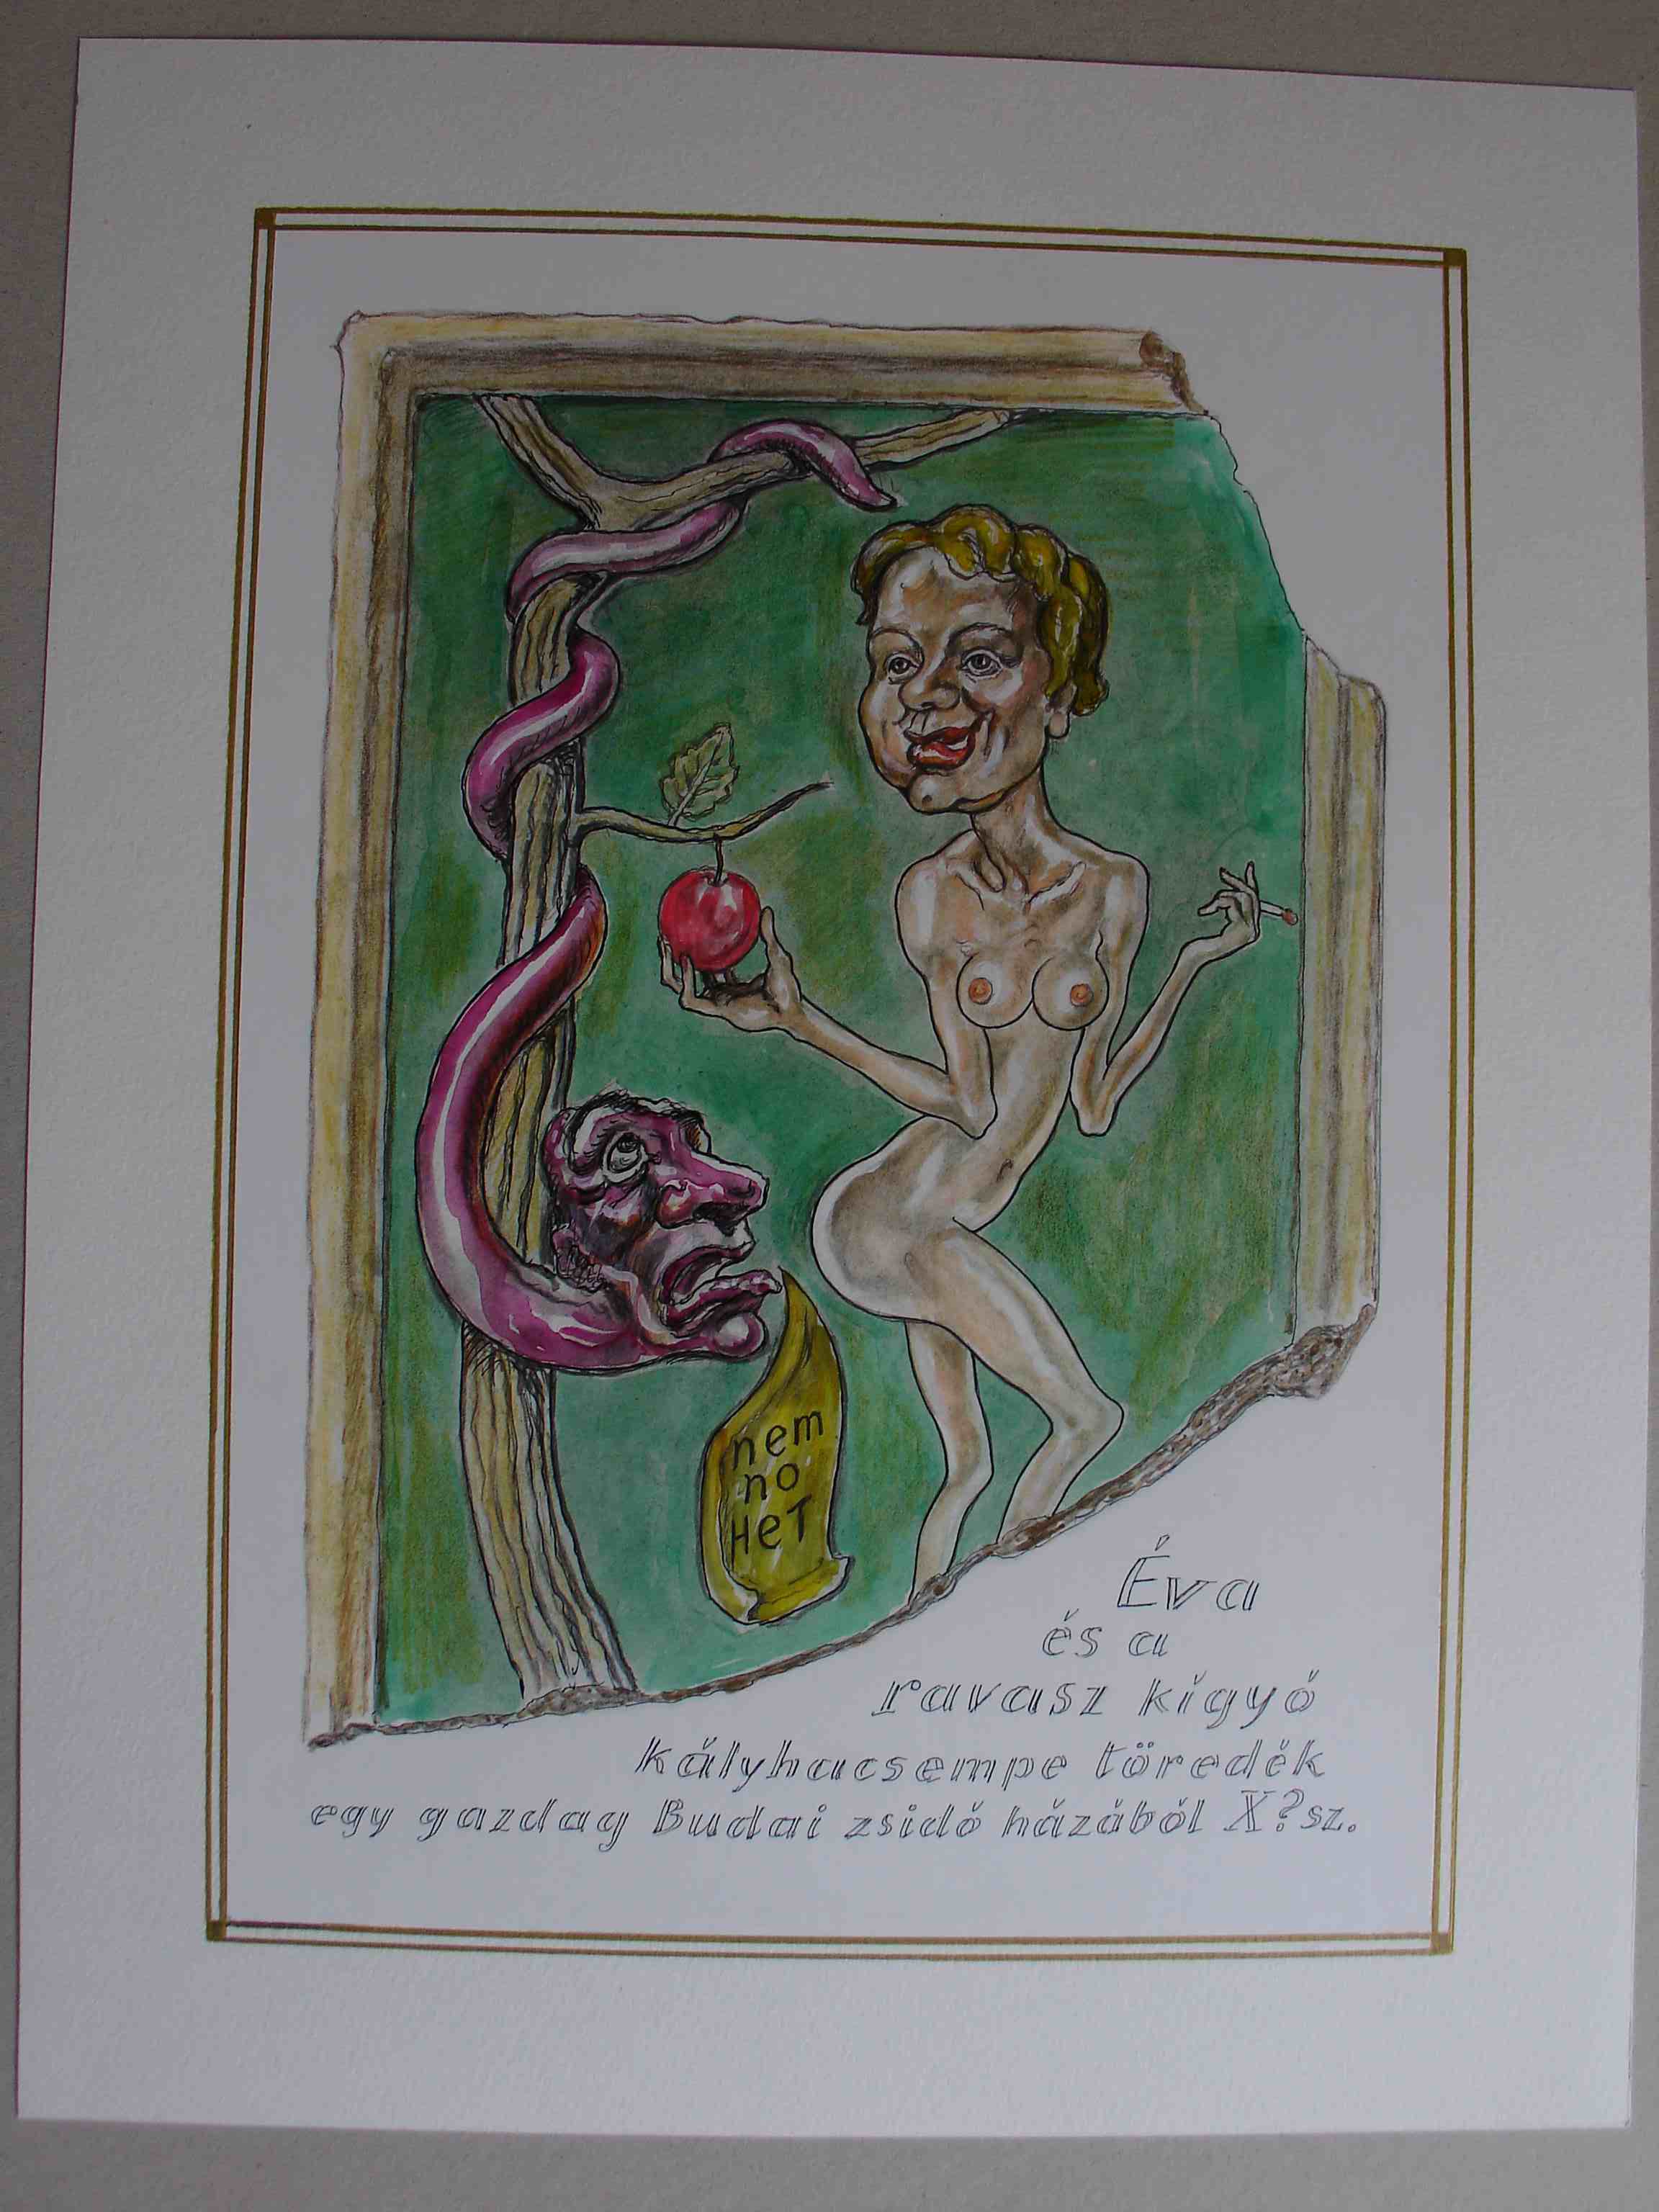 nem
no
HeT
Éva
és a
ravasz kígyó
kályhacsempe töredék
egy gazdag Budai zsidó házából X?sz.